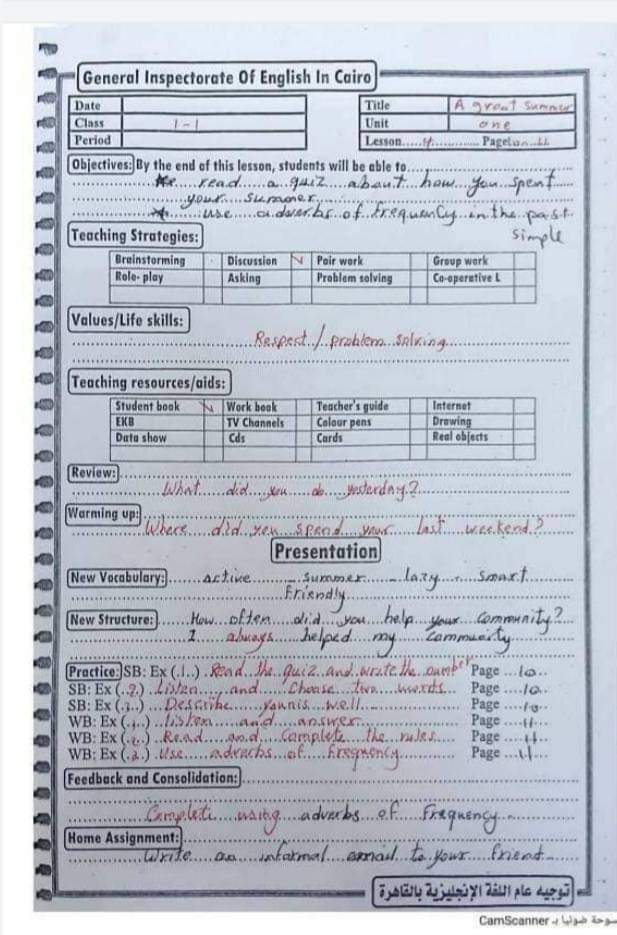 General Inspectorate Of English In Cairo
Date
Class 1-1
Period
Title A great summer
Unit one
Lesson 4 Page
Objectives: By the end of this lesson, students will be able to
read a quiz about how you spent
your summer
use adverbs of frequency in the past
simple
Teaching Strategies:
Brainstorming Discussion Pair work Group work
Role- play Asking Problem solving Co-operative L
Values/Life skills:
Respect / problem solving
Teaching resources/aids:
Student book Work book Teacher's guide Internet
EKB TV Channels Colour pens Drawing
Data show Cds Cards Real objects
Review:
What did you do yesterday?
Warming up:
Where did you spend your last weekend?
Presentation
New Vocabulary: active summer lazy smart
friendly
New Structure: How often did you help your community?
I always helped my community
Practice: SB: Ex (1) Read the quiz and write the number Page 10
SB: Ex (2) Listen and choose two words Page 10
SB: Ex (3) Describe younis well Page 10
WB: Ex (1) listen and answer Page 11
WB: Ex (2) Read and complete the rules Page 11
WB: Ex (3) Use adverbs of frequency Page 11
Feedback and Consolidation:
Complete using adverbs of frequency
Home Assignment:
Write an informal email to your friend
توجيه عام اللغة الإنجليزية بالقاهرة
CamScanner ممسوحة ضوئيا بـ